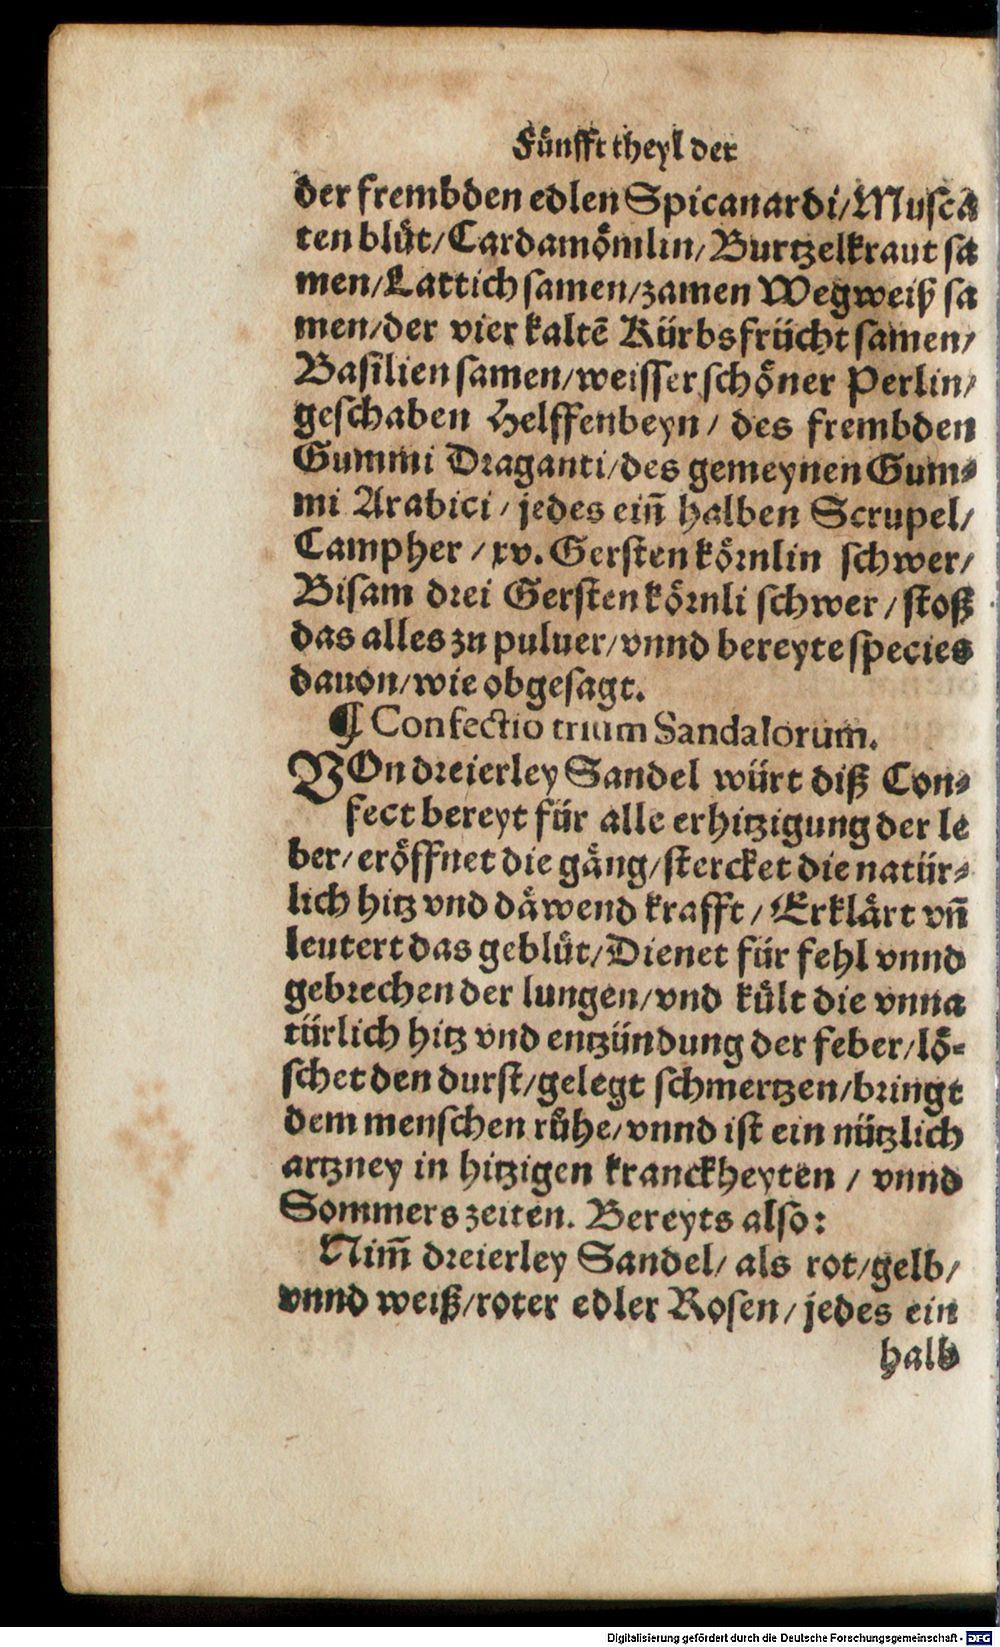 Fünfft theyl der
der frembden edlen Spicanardi/Musca
ten blüt/Cardamömlin/Burtzelkraut sa
men/Lattich samen/zamen Wegweiß sa
men/der vier kaltē Kürbsfrücht samen/
Basilien samen/weisser schöner Perlin/
geschaben Helffenbeyn/ des frembden
Gummi Draganti/des gemeynen Gum⸗
mi Arabici/ jedes ein̄ halben Scrupel/
Campher/xv. Gersten körnlin schwer/
Bisam drei Gersten körnli schwer/stoß
das alles zu puluer/vnnd bereyte species
dauon/wie obgesagt.
¶ Confectio trium Sandalorum.
VOn dreierley Sandel würt diß Con⸗
fect bereyt für alle erhitzigung der le
ber/eröffnet die gäng/stercket die natür⸗
lich hitz vnd däwend krafft/ Erklärt vn̄
leutert das geblüt/Dienet für fehl vnnd
gebrechen der lungen/vnd kült die vnna
türlich hitz vnd entzündung der feber/lö⸗
schet den durst/gelegt schmertzen/bringt
dem menschen rühe/vnnd ist ein nützlich
artzney in hitzigen kranckheyten/ vnnd
Sommers zeiten. Bereyts also:
Nim̄ dreierley Sandel/ als rot/gelb/
vnnd weiß/roter edler Rosen/jedes ein
halb
Digitalisierung gefördert durch die Deutsche Forschungsgemeinschaft - DFG